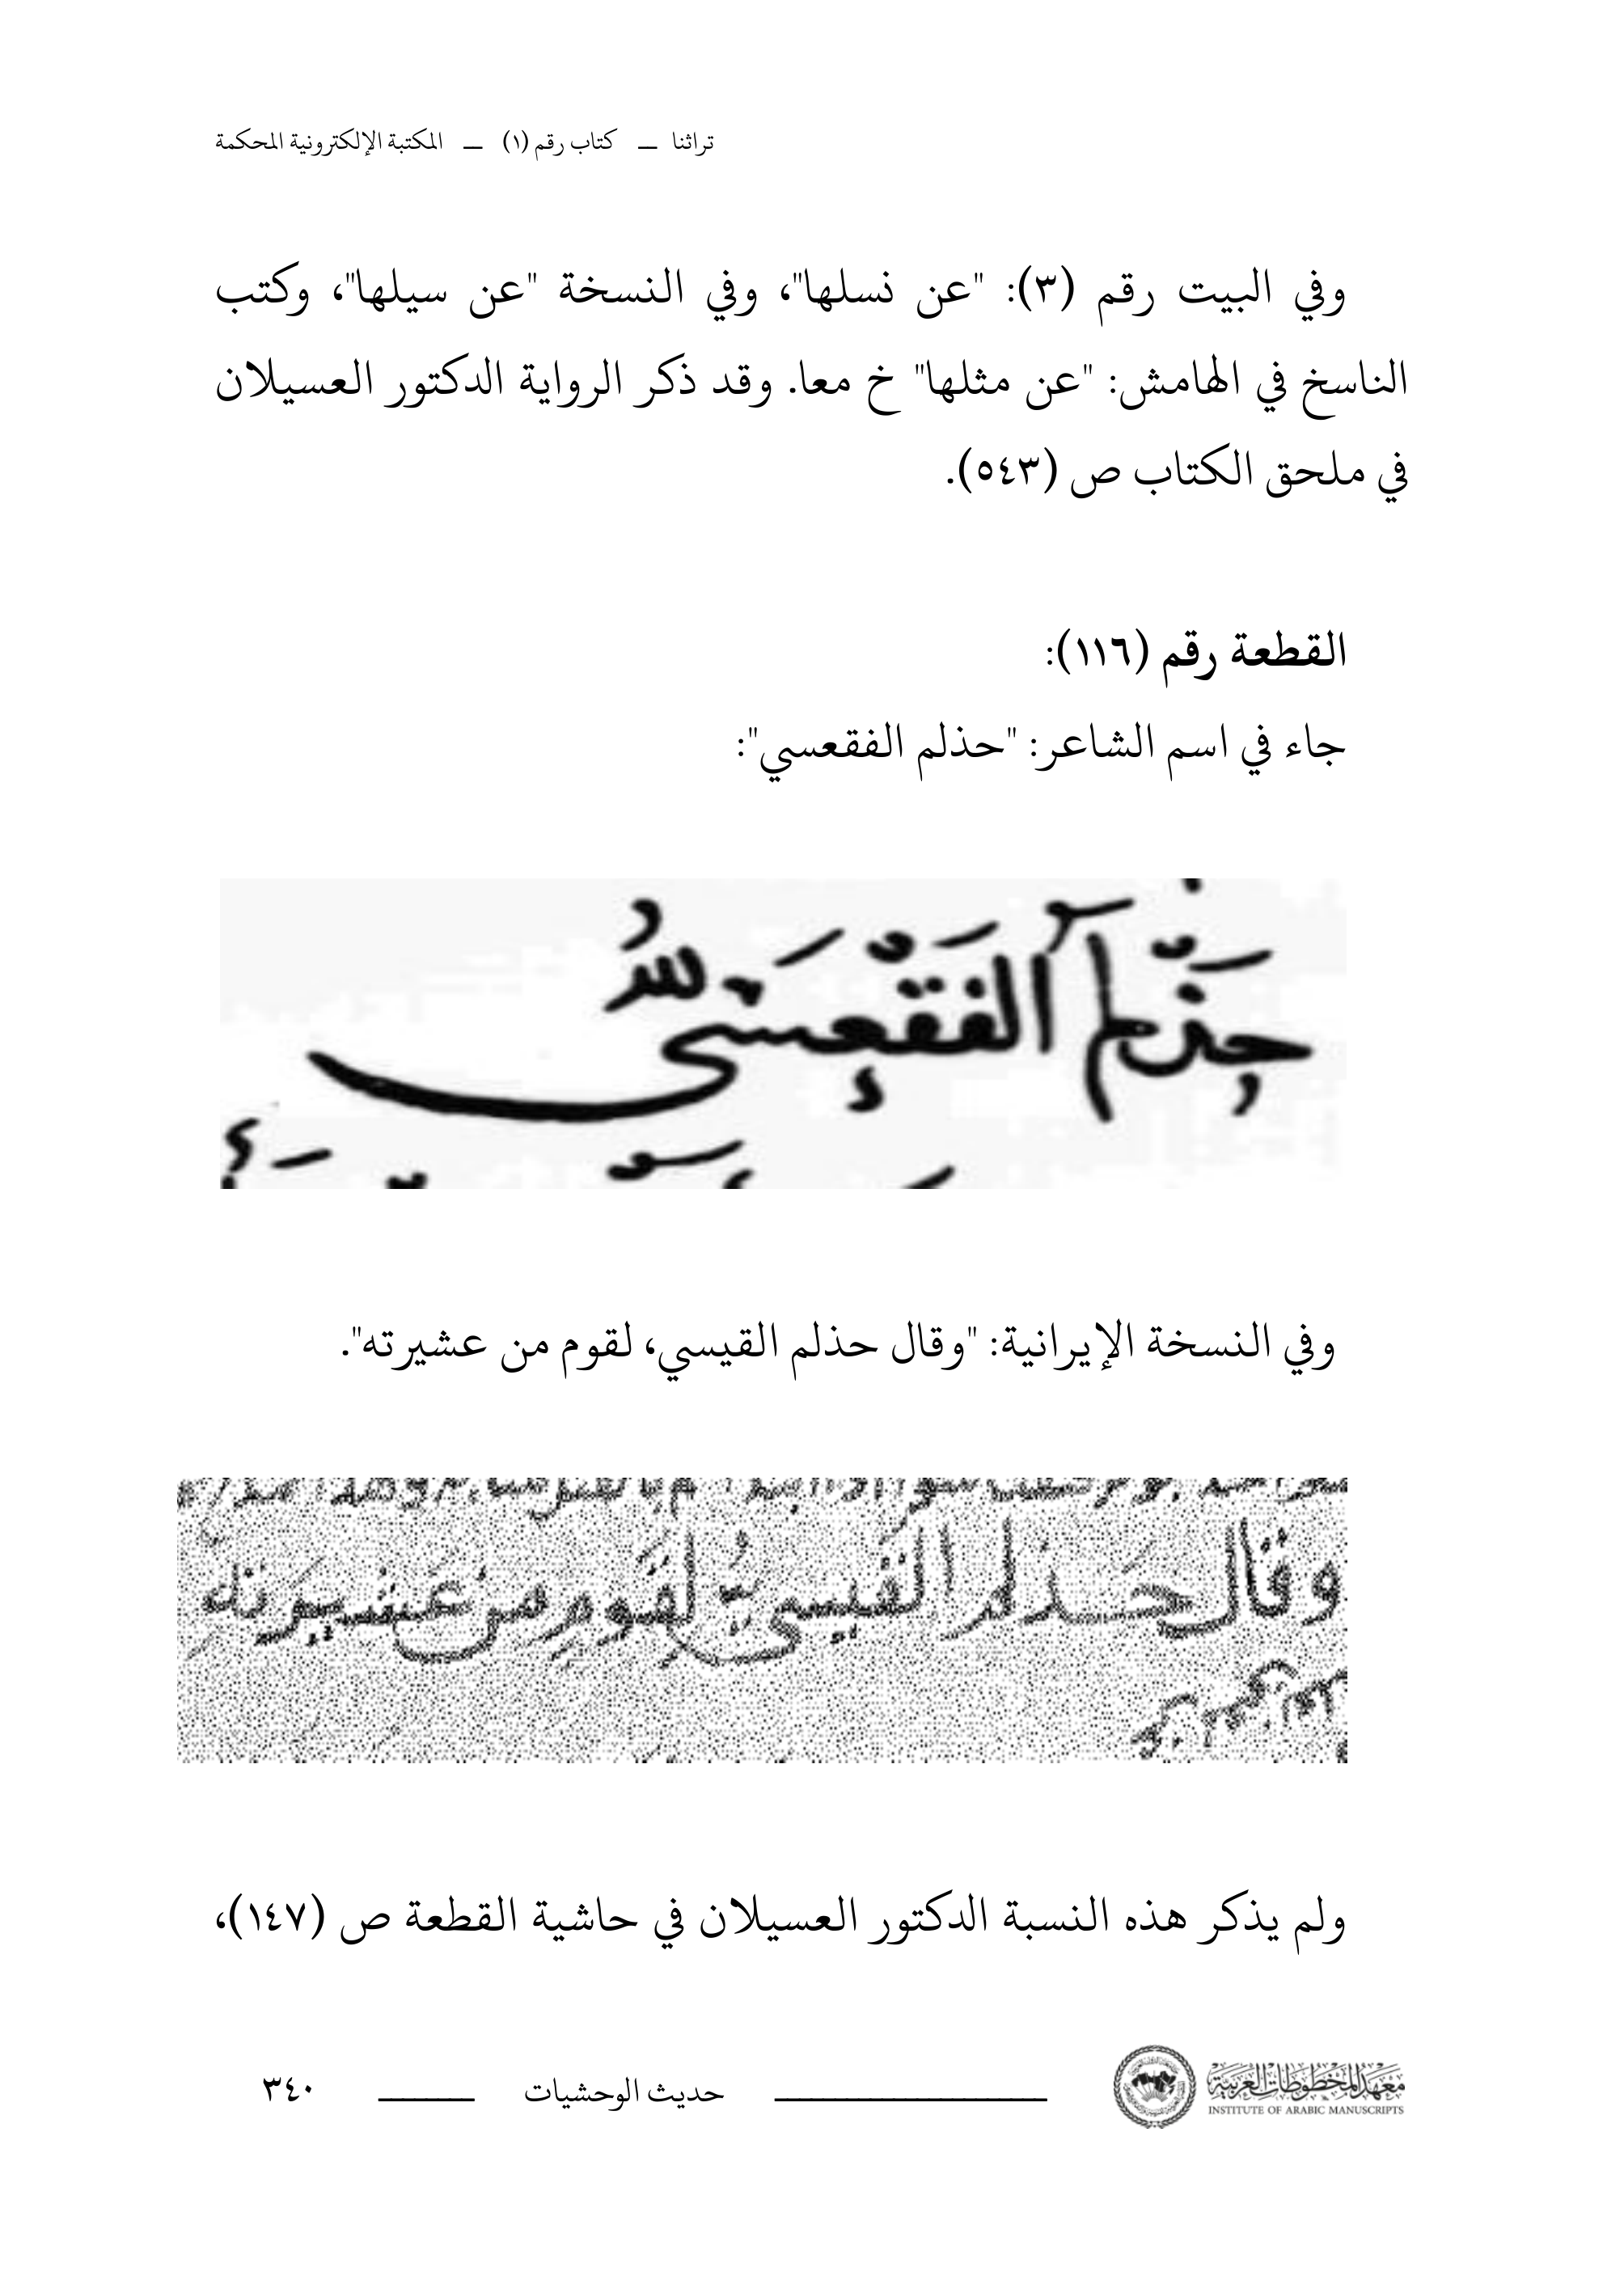 تراثنا — كتاب رقم (١) — المكتبة الإلكترونية المحكمة
وفي البيت رقم (٣): "عن نسلها"، وفي النسخة "عن سيلها"، وكتب
الناسخ في الهامش: "عن مثلها" خ معا. وقد ذكر الرواية الدكتور العسيلان
في ملحق الكتاب ص (٥٤٣).
القطعة رقم (١١٦):
جاء في اسم الشاعر: "حذلم الفقعسي":
حَذْلَم الفَقْعَسيُّ
وفي النسخة الإيرانية: "وقال حذلم القيسي، لقوم من عشيرته".
وقال حَذلم القَيسيُّ لِقَومٍ من عَشيرَته
ولم يذكر هذه النسبة الدكتور العسيلان في حاشية القطعة ص (١٤٧)،
معهد المخطوطات العربية
INSTITUTE OF ARABIC MANUSCRIPTS
حديث الوحشيات
٣٤٠